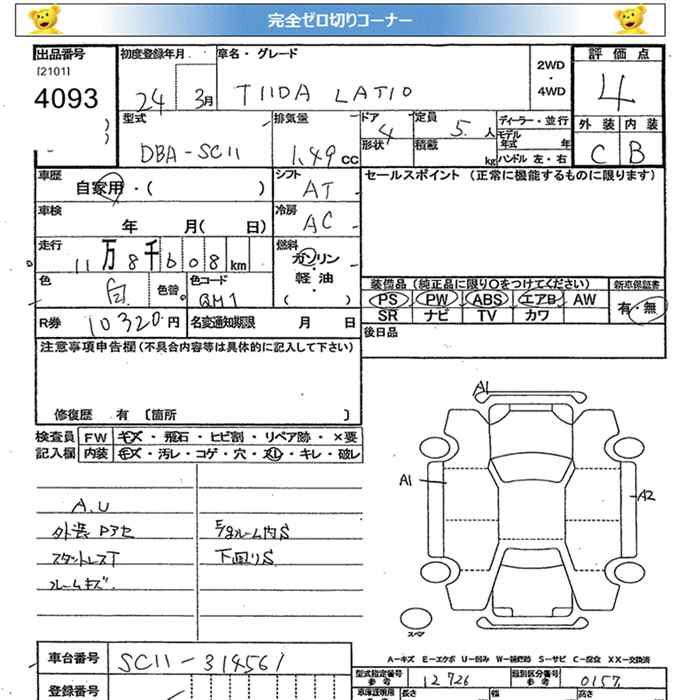 完全ゼロ切りコーナー
出品番号 初度登録年月 車名・グレード 評価点
[2101] 2WD
4093 24 3月 TIIDA LATIO ・ 4WD 4
型式 排気量 ドア 4 定員 5.人 ディーラー・並行 外装 内装
DBA-SC11 1.49cc 形状 積載 kg モデル年式 年 C B
ハンドル 左・右
車歴 自家用・( ) シフト AT セールスポイント (正常に機能するものに限ります)
車検 年 月( 日) 冷房 AC
走行 11万8千608km 燃料 ガソリン・軽油・( )
色 白 色替 色コード QM1
装備品(純正品に限り○をつけてください) 新車保証書
PS PW ABS エアB AW 有・無
SR ナビ TV カワ
R券 10320円 名変通知期限 月 日 後日品
注意事項申告欄(不具合内容等は具体的に記入して下さい)
修復歴 有 〔箇所 〕
検査員 FW キズ・飛石・ヒビ割・リペア跡・×要
記入欄 内装 キズ・汚レ・コゲ・穴・スレ・キレ・破レ
A1
A1 A2
A.U
スタットレスT 下回りS
フレームキズ.
スペア
A-キズ E-エクボ U-凹み W-補修跡 S-サビ C-腐食 XX-交換済
車台番号 SC11-314561
型式指定番号 参考 12726 類別区分番号 参考 0157
登録番号 車庫証明用 参考 長さ 幅 高さ